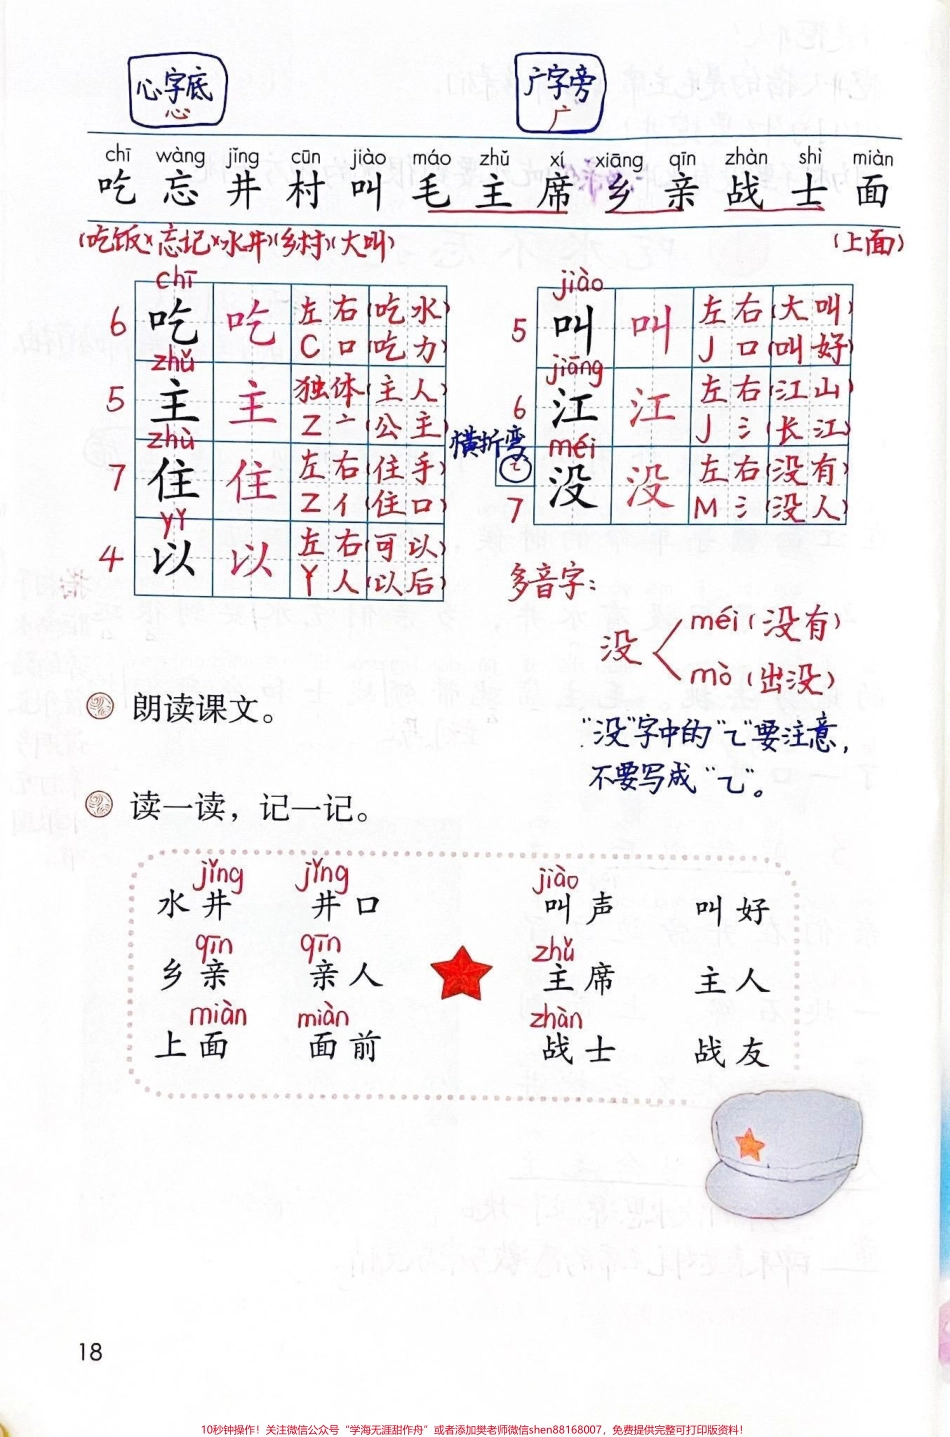 心字底
心
广字旁
广
chī wàng jǐng cūn jiào máo zhǔ xí xiāng qīn zhàn shì miàn
吃 忘 井 村 叫 毛 主 席 乡 亲 战 士 面
(吃饭)(忘记)(水井)(乡村)(大叫) (上面)
chī
6 吃 吃 左右 (吃水)
C 口 (吃力)
zhǔ
5 主 主 独体 (主人)
Z 亠 (公主)
zhù
7 住 住 左右 (住手)
Z 亻 (住口)
yǐ
4 以 以 左右 (可以)
Y 人 (以后)
jiào
5 叫 叫 左右 (大叫)
J 口 (叫好)
jiāng
6 江 江 左右 (江山)
J 氵 (长江)
横折弯
méi
7 没 没 左右 (没有)
M 氵 (没人)
多音字:
没
méi (没有)
mò (出没)
朗读课文。
"没"字中的"㇍"要注意,
不要写成"乙"。
读一读，记一记。
jǐng jǐng jiào
水井 井口 叫声 叫好
qīn qīn zhǔ
乡亲 亲人 主席 主人
miàn miàn zhàn
上面 面前 战士 战友
18
10秒钟操作！关注微信公众号“学海无涯甜作舟”或者添加樊老师微信shen88168007，免费提供完整可打印版资料！